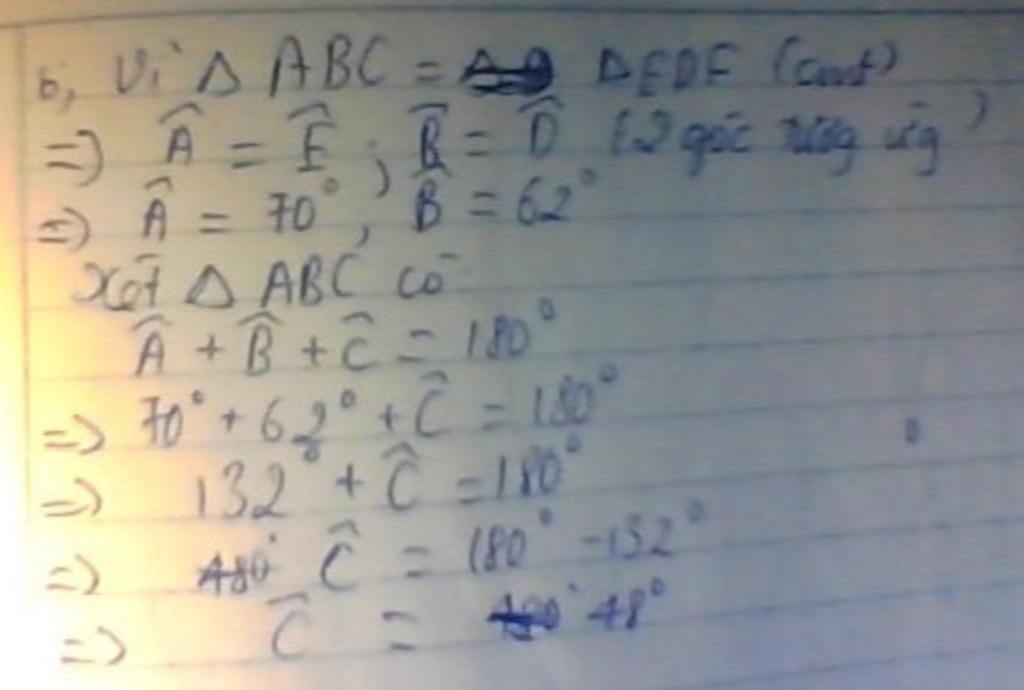 b, Vì Δ ABC = Δ EDF (cmt)
=> Â = Ê ; B̂ = D̂ (2 góc tương ứng)
=> Â = 70° ; B̂ = 62°
Xét Δ ABC có
Â + B̂ + Ĉ = 180°
=> 70° + 62° + Ĉ = 180°
=> 132° + Ĉ = 180°
=> Ĉ = 180° - 132°
=> Ĉ = 48°